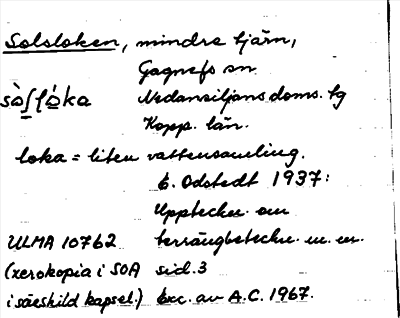 Solsloken, mindre tjärn,
Gagnefs sn.
sòl̥ʃlóka Nedansiljans doms. tg
Kopp. län.
loka = liten vattensamling.
E. Odstedt 1937:
Uppteckn. om
ULMA 10762 terrängbeteckn. m. m.
(xerokopia i SOA sid. 3
i särskild kapsel.) Exc. av A.C. 1967.